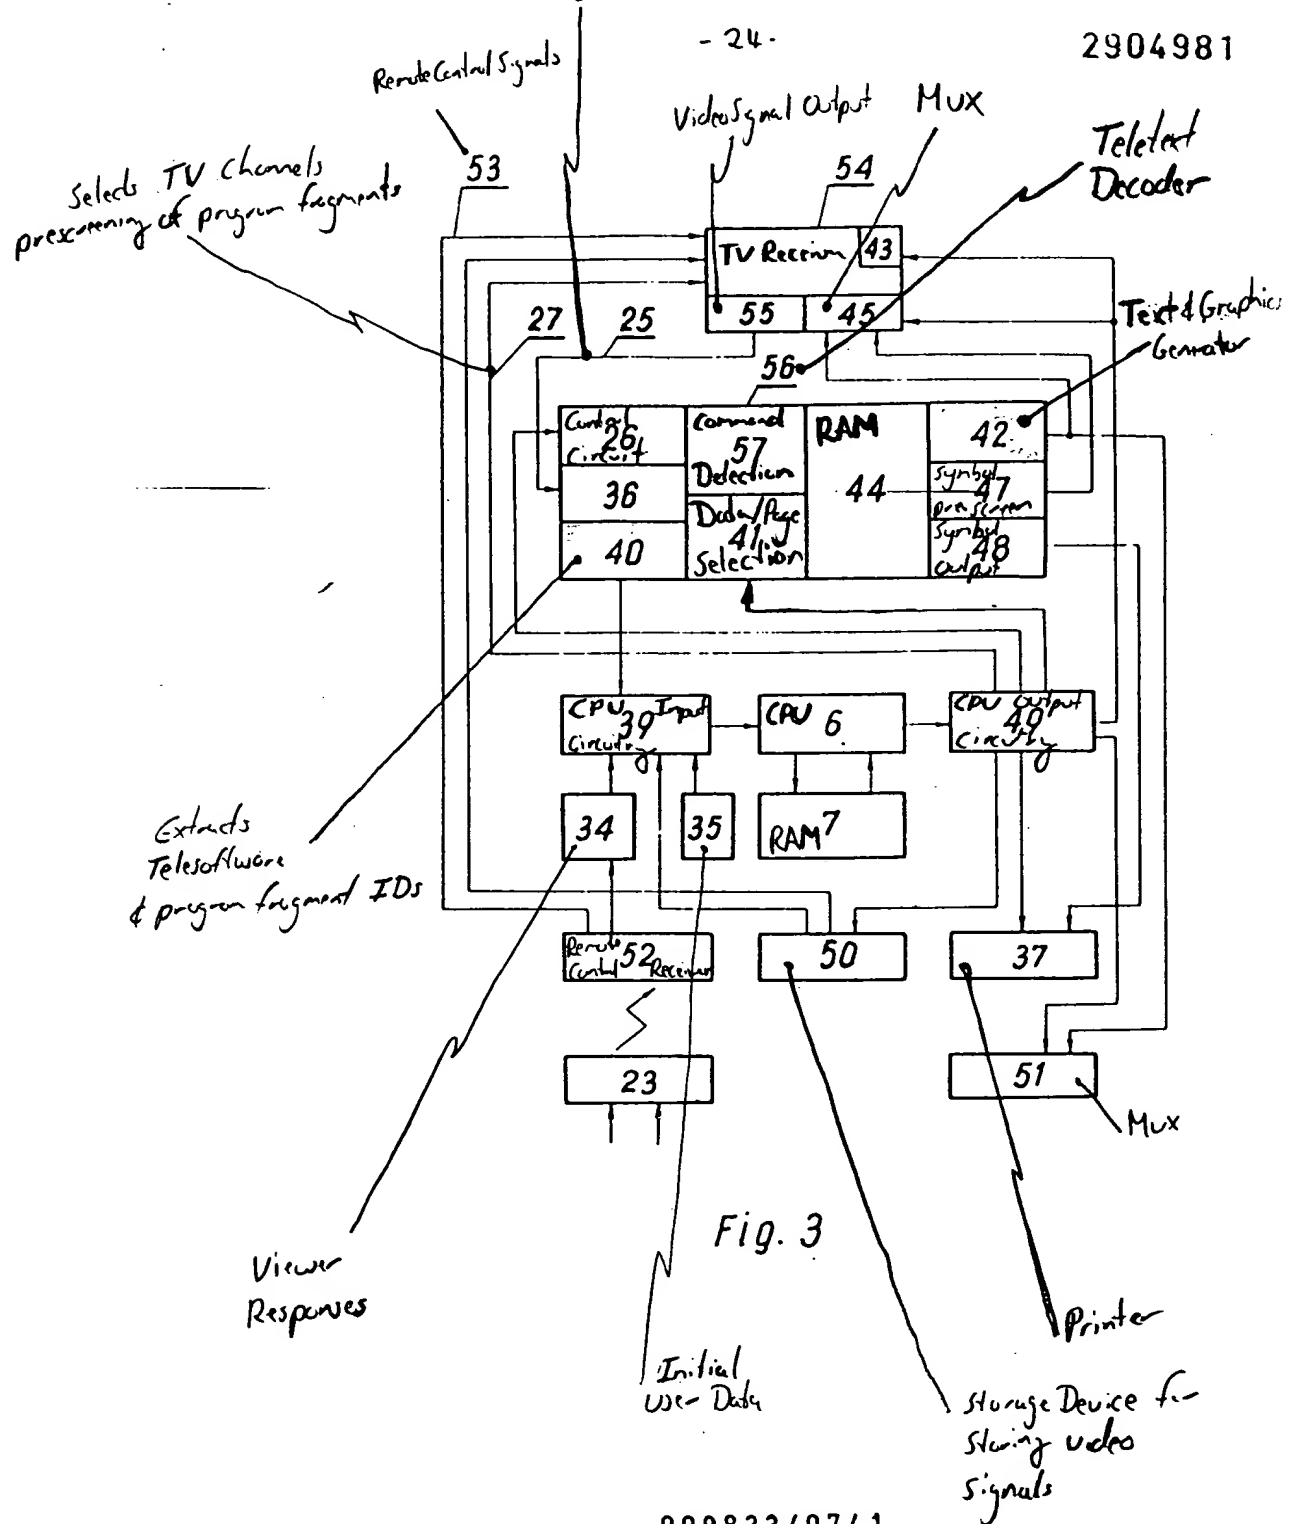 - 24 -
2904981
Remote Control Signals
Video Signal Output
Mux
Teletext
Decoder
Selects TV Channels
prescreening of program fragments
53
54
TV Receiver
43
27
25
55
45
Text & Graphics
Generator
56
Control
26
Circuit
Command
57
Detection
RAM
44
42
36
Symbol
47
prescreen
40
Data/Page
41
Selection
Symbol
48
Output
CPU Input
39
Circuitry
CPU 6
CPU Output
49
Circuitry
34
35
RAM 7
Extracts
Telesoftware
& program fragment IDs
Remote
Control 52 Receiver
50
37
23
51
Mux
Fig. 3
Viewer
Responses
Printer
Initial
User Data
Storage Device for
Storing video
Signals